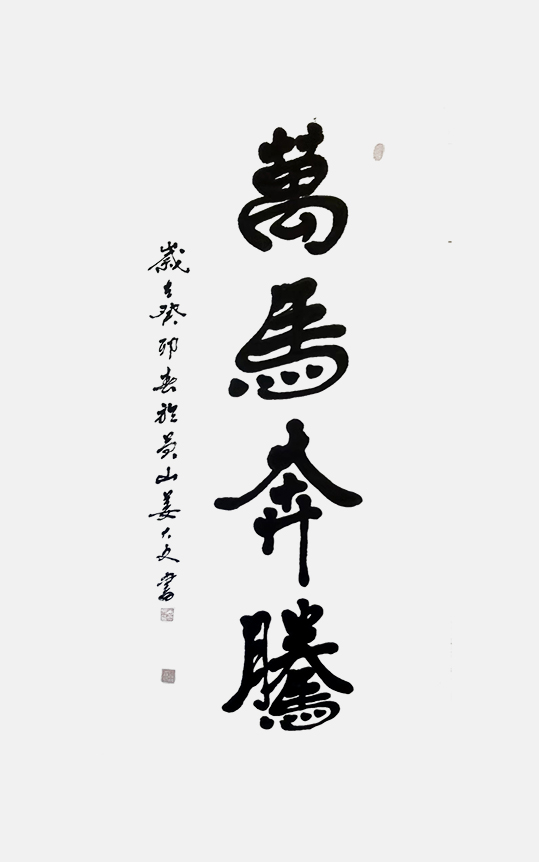 萬馬奔騰
歲在癸卯春於黄山姜大文